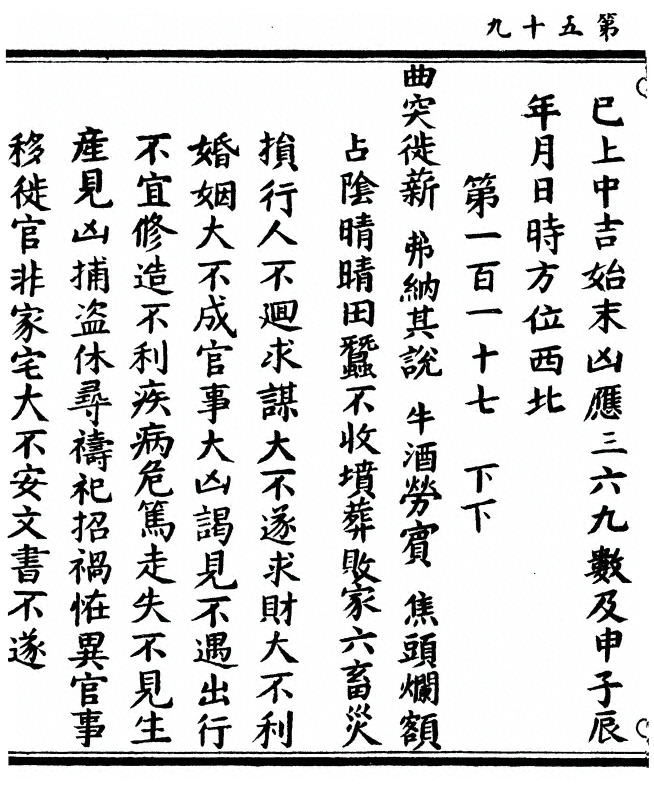 第五十九
已上中吉始末凶應三六九數及申子辰
年月日時方位西北
第一百一十七 下下
曲突徙薪 弗納其說 牛酒勞賓 焦頭爛額
占陰晴晴田蠶不收墳葬敗家六畜災
損行人不迴求謀大不遂求財大不利
婚姻大不成官事大凶謁見不遇出行
不宜修造不利疾病危篤走失不見生
產見凶捕盜休尋禱祀招禍怪異官事
移徙官非家宅大不安文書不遂